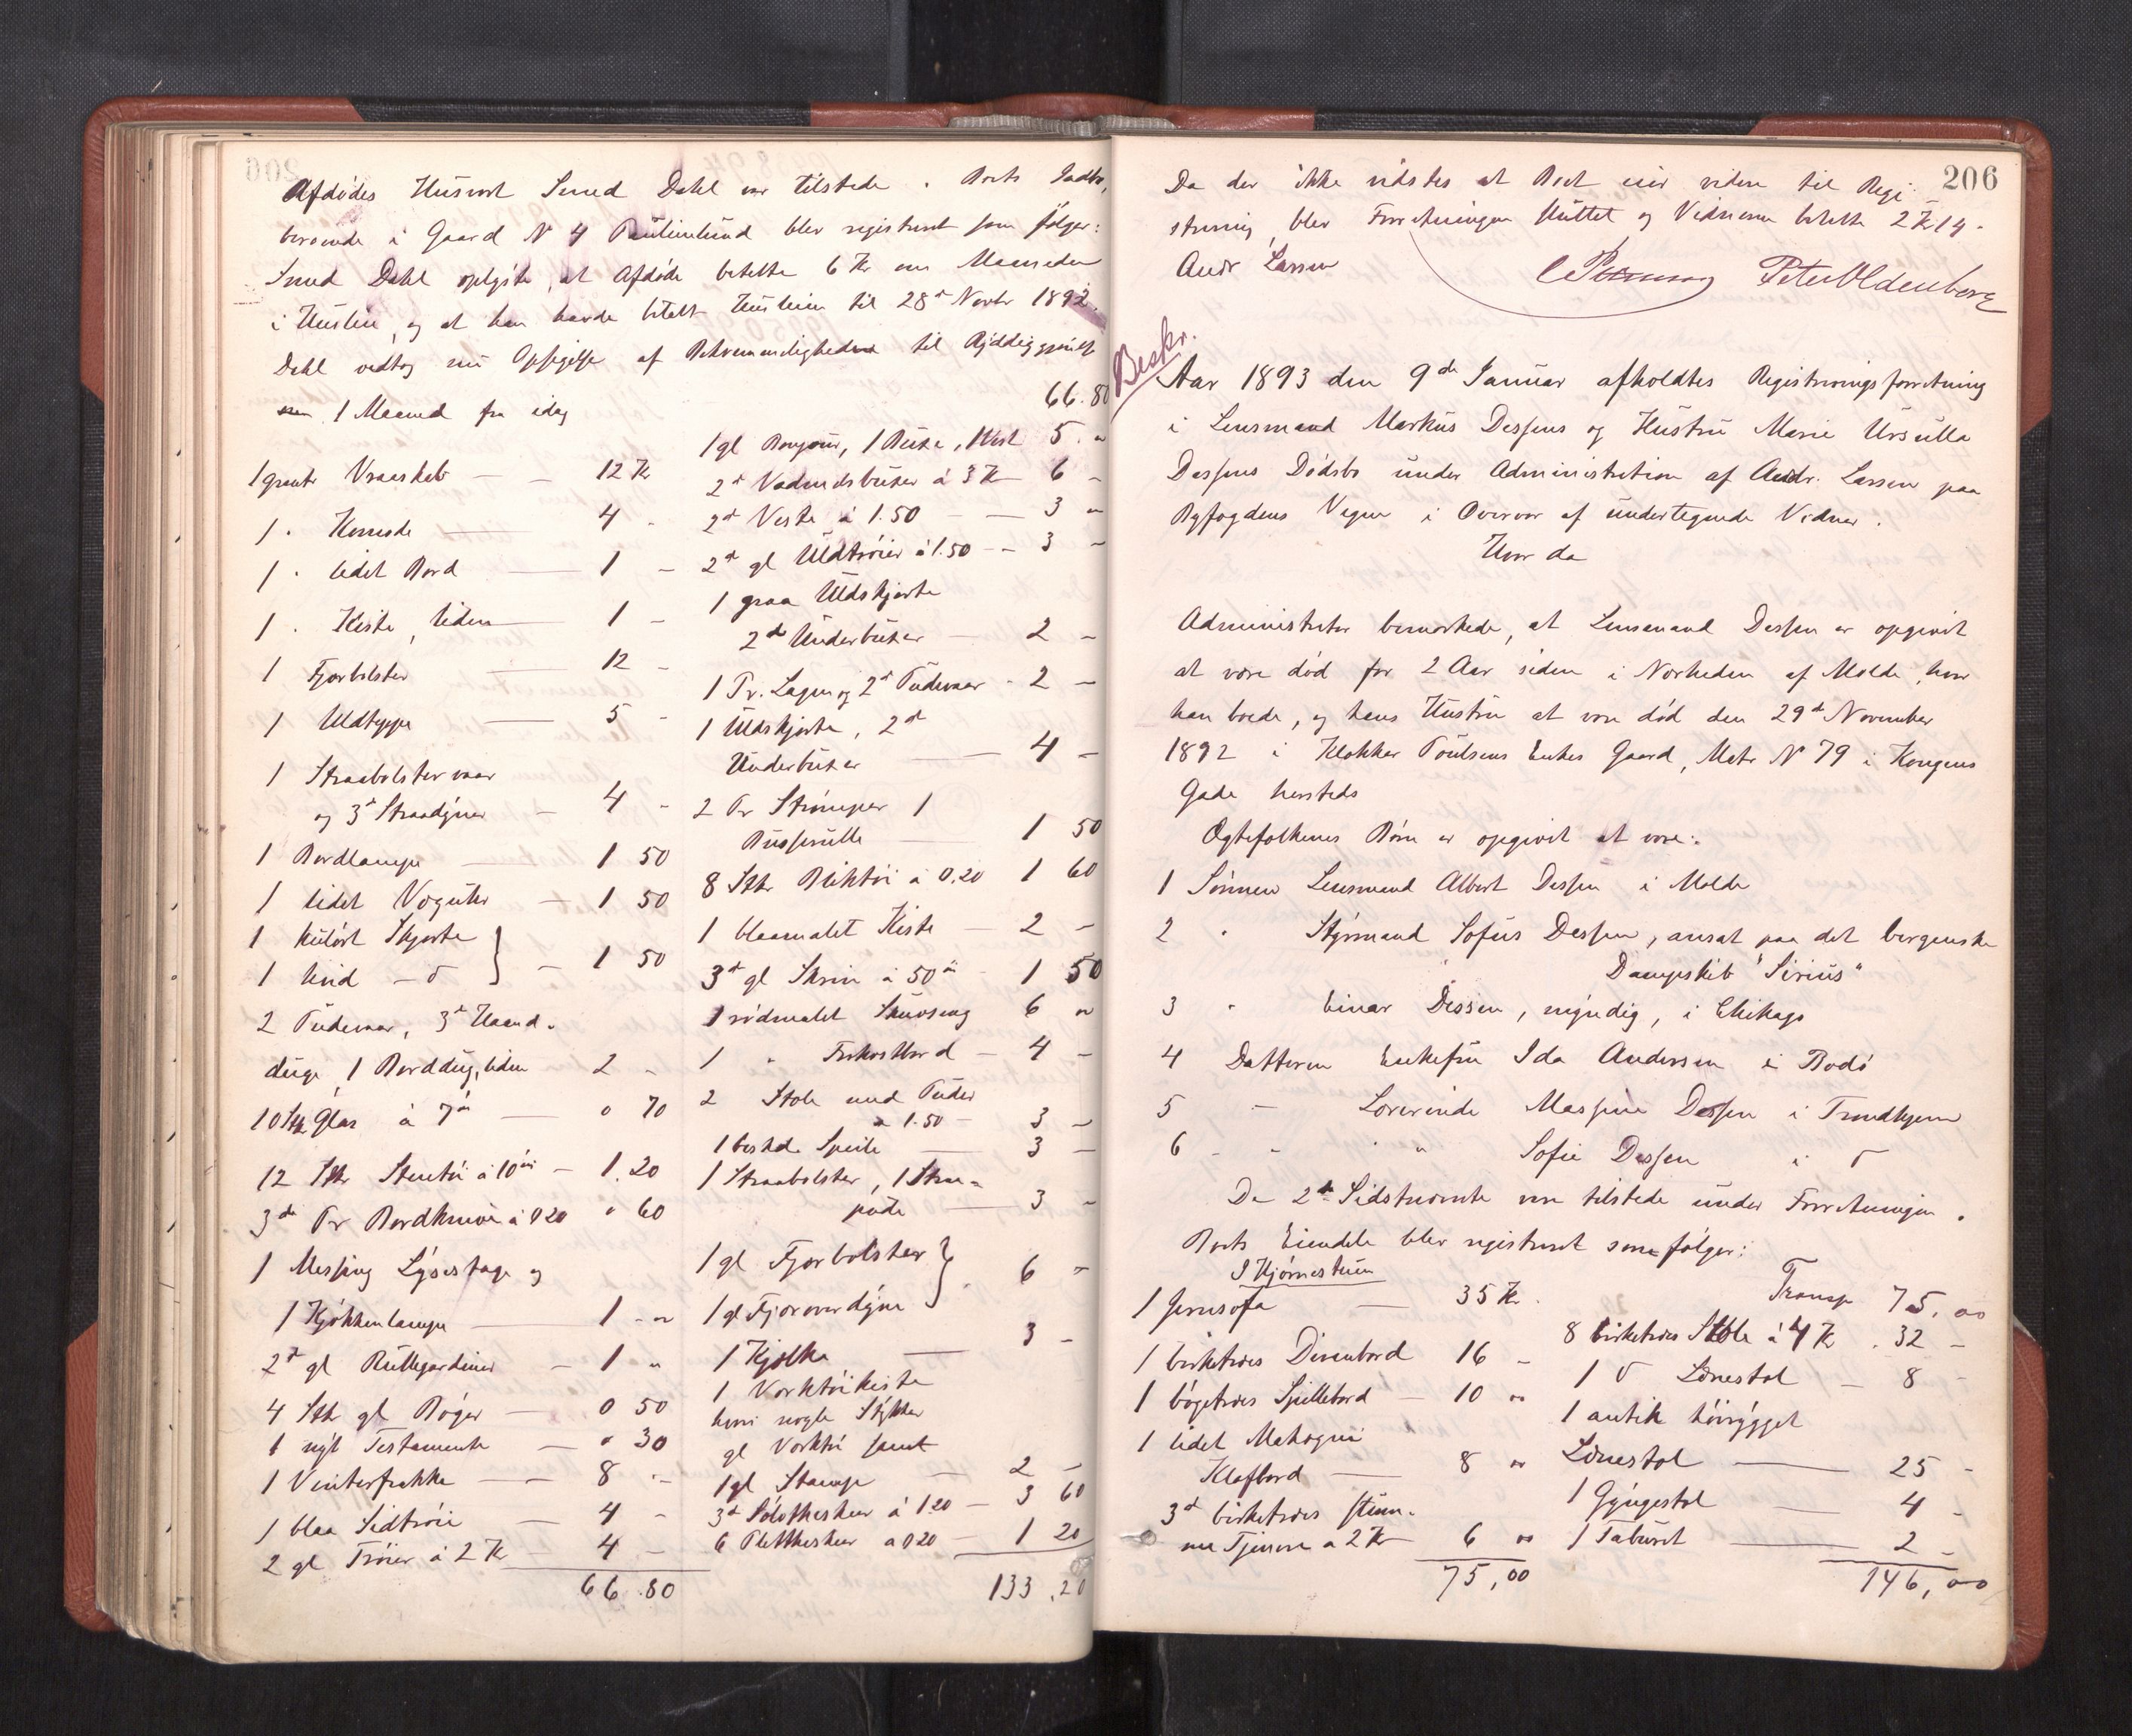 Afdødes Husvert Smed Dahl var tilstede. Boets Indbo,
beroende i Gaard N 4 Paulinelund blev registreret som følger:
Smed Dahl oplyste, at Afdøde betalte 6 Kr om Maaneden
i Husleie, og at han havde betalt Husleien til 28d Novbr 1892.
Dahl vedtog nu Opsigelse af Bekvemmeligheden til Ryddiggjørelse
1 Maaned fra idag
1 grønt Vraaskab — 12 Kr
1 " Komode — 4 -
1 " lidet Bord — 1 -
1 " Kiste, liden — 1 -
1 Fjærbolster — 12 -
1 Uldtæppe — 5 -
1 Straabolstervaar
og 3d Straadyner — 4 -
1 Bordlampe — 1 50
1 lidet Væguhr — 1 50
1 kulørt Skjorte
1 hvid — d } — 1 50
2 Pudevaar, 3d Haand-
duge, 1 Borddug, liden 2 -
10 Stk Glas à 7ø — " 70
12 Stk Stentøi à 10ør — 1.20
3d Pr Bordknive à 0 20 " 60
1 Messing Lysestage og
1 Kjøkkenlampe — 1 - "
2d gl Rullegardiner — 1 "
4 Stk gl Bøger — 0 50
1 nyt Testamente — " 30
1 Vinterfrakke — 8 "
1 blaa Sidtrøie — 4 -
2 gl Trøier à 2 Kr — 4 -
66.80
66.80
1 gl Bonjour, 1 Buxe, 1 Vest 5. "
2d Vadmelsbuxer à 3 Kr 6 -
2d Veste à 1.50 — 3 "
2d gl Uldtrøier à 1.50 — 3 -
1 graa Uldskjorte
2d Underbuxer — 2 -
1 Pr. Lagen og 2d Pudevaar - 2 -
1 Uldskjorte, 2d
Underbuxer — 4 -
2 Pr Strømper 1
Busserulle — 1 50
8 Stk Bliktøi à 0.20 1 60
1 blaamalet Kiste — 2 -
3d gl Skrin à 50ør 1 50
1 rødmalet Skuvseng 6 "
1 " Frokostbord — 4 -
2 Stole med Puder
à 1.50 — 3 -
1 beskd. Speile — 3 -
1 Straabolster, 1 Straa-
pude — 3 -
1 gl Fjærbolster
1 gl Fjæroverdyne } 6 -
1 Kjælke — 3 -
1 Værktøikiste
hvori nogle Stykker
gl Værktøi samt
1 gl Stampe — 2 -
3d Sølvtheskeer à 1.20 — 3 60
6 Pletttheskeer à 0 20 — 1 20
133.20
206
Da der ikke vidstes at Boet eier videre til Regi-
strering, blev Forretningen sluttet og Vidnerne betalte 2 Kr 14.
Andr Larsen Peter Oldenborg
Beskr.
Aar 1893 den 9de Januar afholdtes Registreringsforretning
i Lensmand Markus Dessens og Hustru Marie Ursulla
Dessens Dødsbo under Administration af Andr. Larsen paa
Byfogdens Vegne i Overvær af undertegnede Vidner.
Hvor da
Administrator bemærkede, at Lensmand Dessen er opgivet
at være død for 2 Aar siden i Nærheden af Molde, hvor
han boede, og hans Hustru at være død den 29d November
1892 i Klokker Poulsens Enkes Gaard, Matr N 79 i Kongens
Gade hersteds
Ægtefolkenes Børn er opgivet at være:
1 Sønnen Lensmand Albert Dessen i Molde
2 " Styrmand Sofus Dessen, ansat paa det bergenske
Dampskib "Sirius"
3 " Einar Dessen, myndig, i Chikago
4 Datteren Enkefru Ida Andersen i Bodø
5 — Lærerinde Massine Dessen i Trondhjem
6 - - " " Sofie Dessen i d
De 2de Sidstnævnte vare tilstede under Forretningen.
Boets Eiendele blev registreret som følger:
I Hjørnestuen
1 Jernsofa — 35 Kr.
1 birketræes Divanbord 16 -
1 bøgetræes Spillebord — 10 "
1 lidet Mahogni
Klafbord — 8 "
3d birketræes stum-
me Tjenere à 2 Kr 6 "
75,00
Transp 75. 00
8 birketræes Stole à 4 Kr. 32 -
1 d Lænestol — 8 -
1 antik høirygget
Lænestol — 25 -
1 Gyngestol — 4 -
1 Taburet — 2 -
146,00